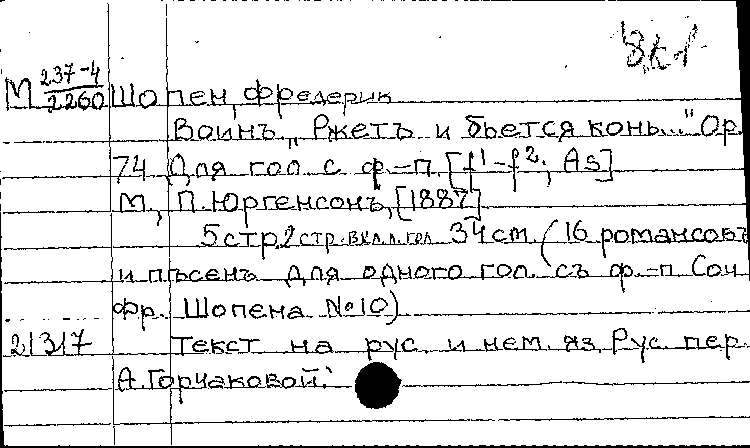 М 237-4/2260 Шопен, Фредерик
Воинъ „Ржетъ и бьется конь..." Op.
74. Для гол. с ф.-п. [f¹-f²; As]
М., П. Юргенсонъ, [1887].
5 стр. 2 стр. вкл. л. гол. 34 cm. (16 романсовъ
и пѣсенъ для одного гол. съ ф.-п. Соч.
Фр. Шопена №10)
21317 Текст на рус. и нем. яз. Рус. пер.
А. Горчаковой.